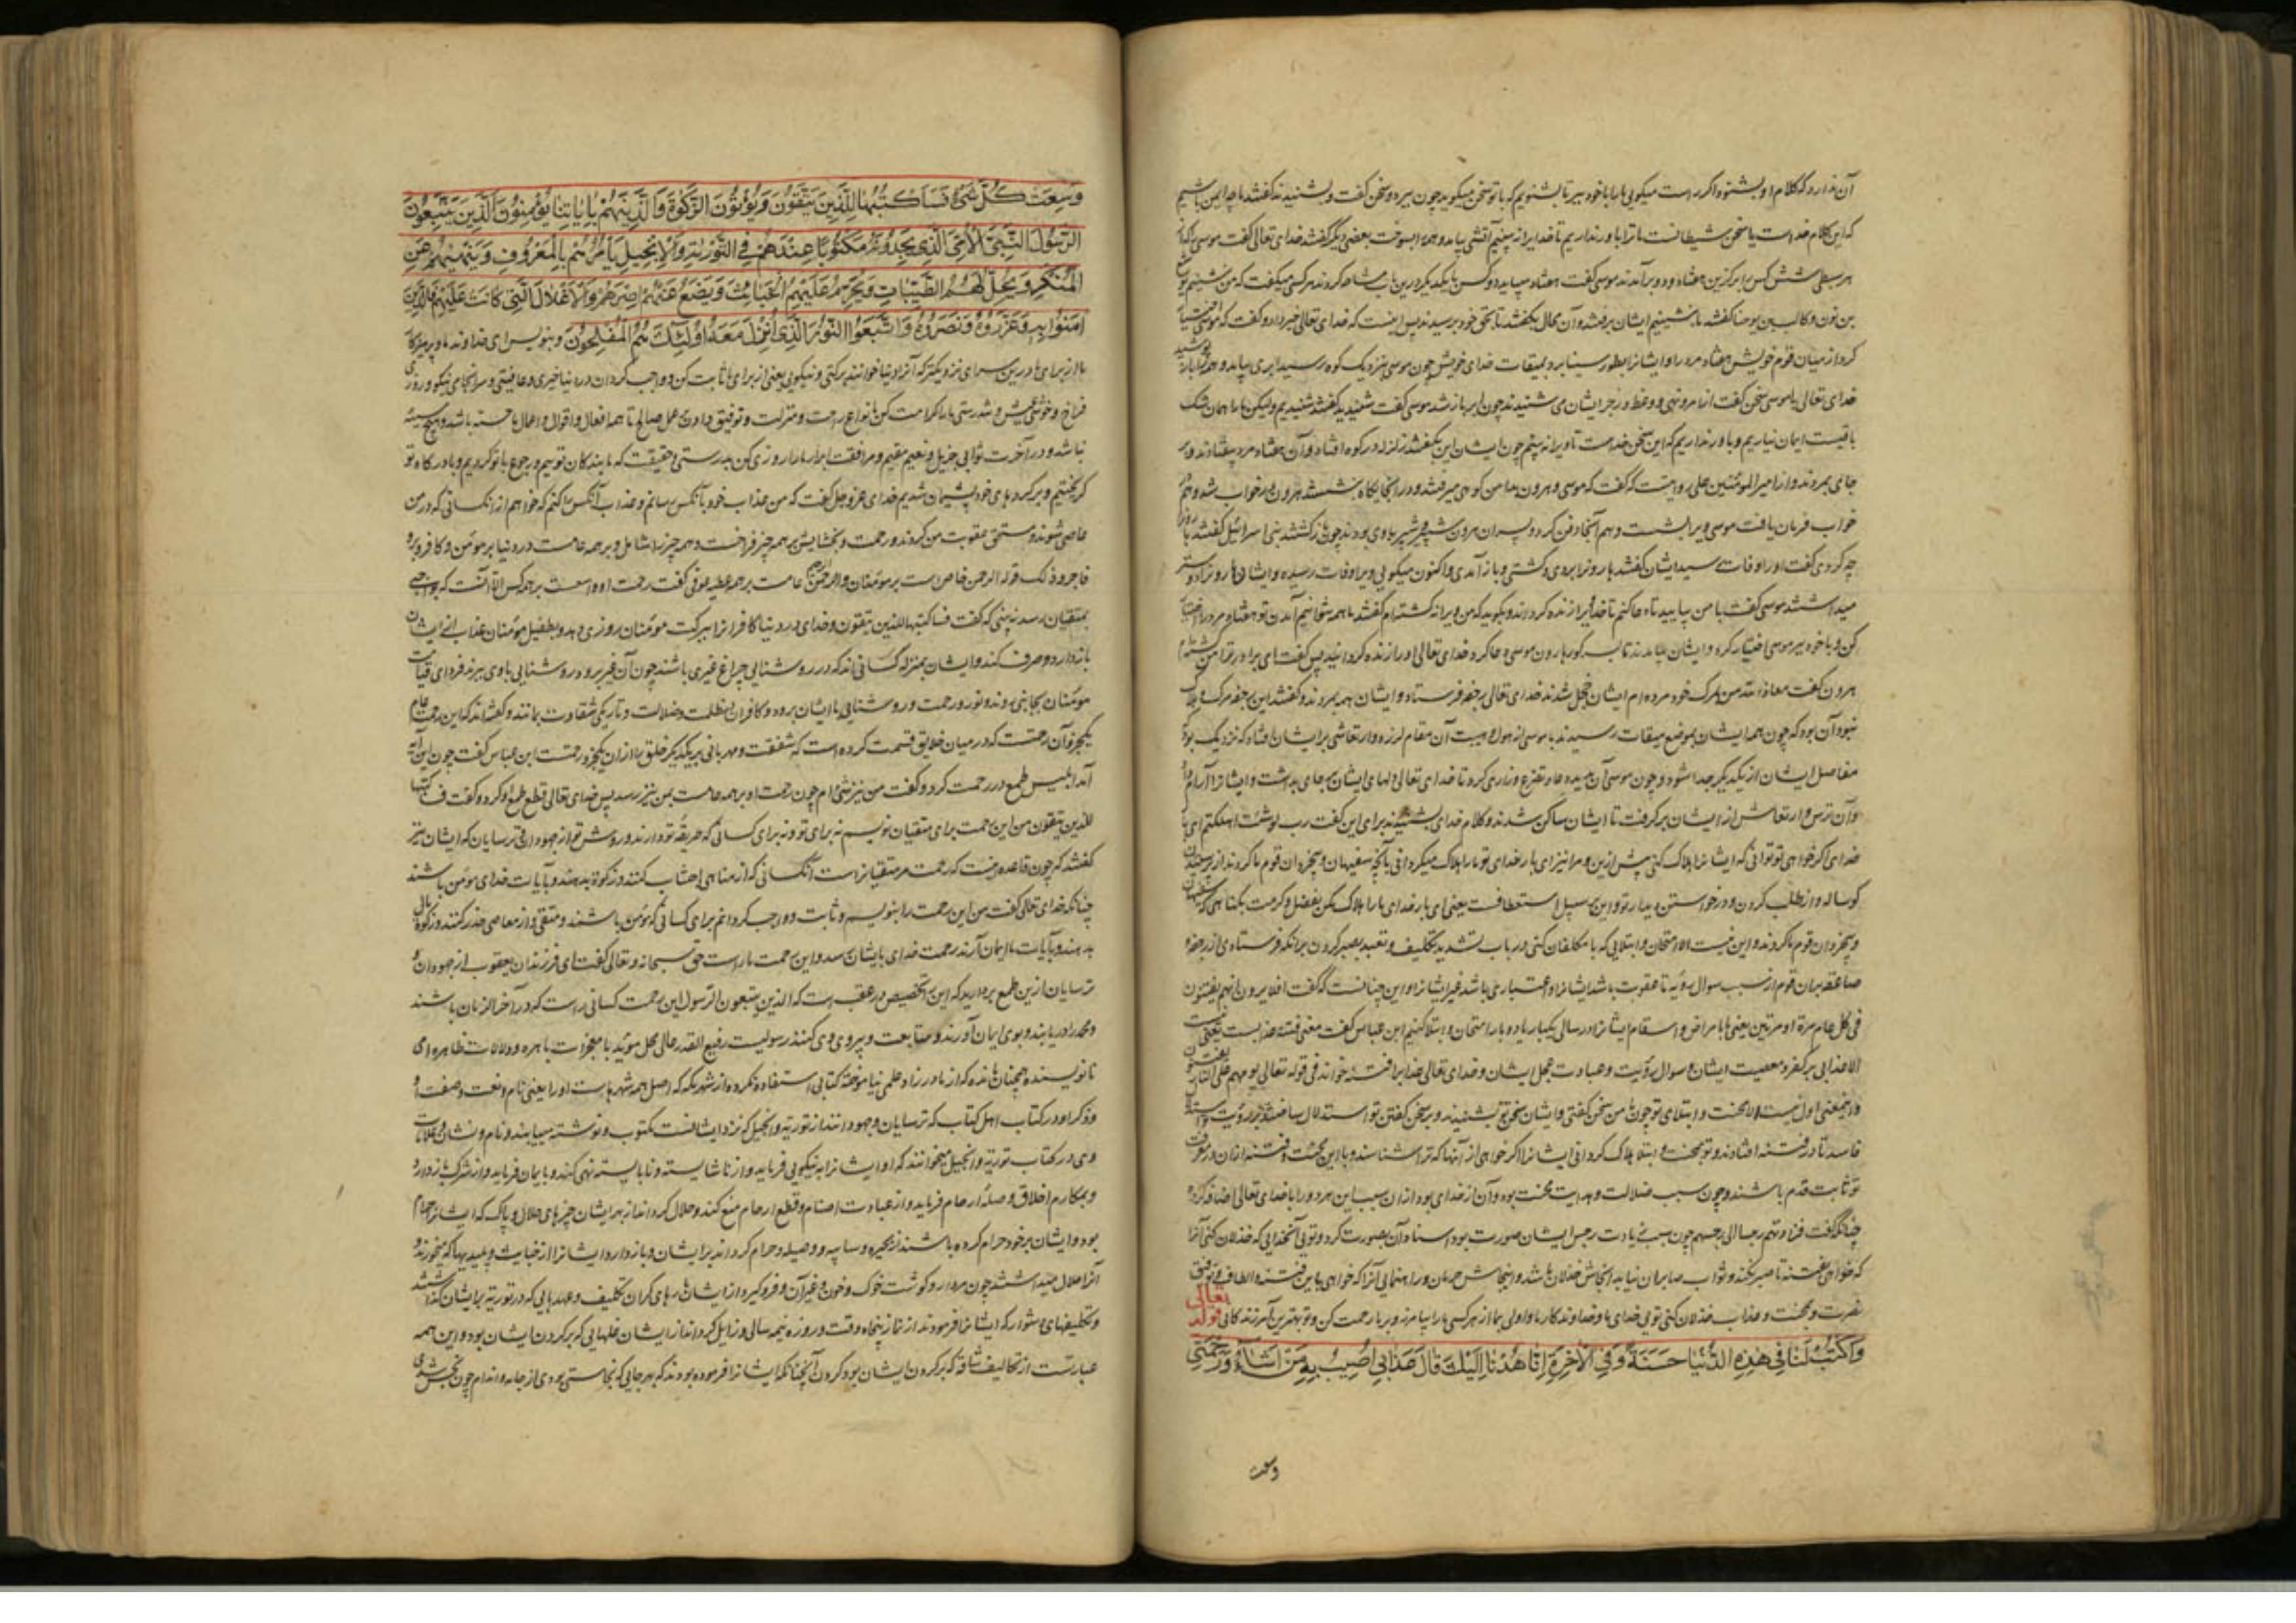 آن ندارد که کلام او بشنود اگر راست میکویی ما را با خود ببر تا بشنویم که با تو سخن میکوید چون ببرد و سخن کفت و بشنیدند کفتند ما چه ایمن باشیم
که این کلام خداست یا سخن شیطانست ما ترا باور نداریم تا خدایرا نه بینیم آتشی بیامد و همه را بسوخت بعضی دیکر کفتند خدای تعالی کفت موسی را که از
هر سبطی شش کس را برکزین هفتاد و دو برآمدند موسی کفت هفتاد میباید دو کس با یکدیکر درین باب مشاجره کردند هر کسی میکفت که من ننشینم یوشع
بن نون و کالب بن یوحنا کفتند ما بنشینیم ایشان برفتند و آن محال بکفتند تا بحق خود برسیدند پس اینست که خدای تعالی خبر داد و کفت که موسی اختیار
کرد از میان قوم خویش هفتاد مرد را و ایشانرا بطور سینا برد بمیقات خدای خویش چون موسی بنزدیک کوه رسید ابری بیامد و همه را بپوشید
خدای تعالی با موسی سخن کفت از امر و نهی و وعظ و زجر ایشان می شنیدند چون ابر باز شد موسی کفت شنیدید کفتند شنیدیم ولیکن ما را همان شک
باقیست ایمان نیاریم و باور نداریم که این سخن خداست تا ویرا نه بینیم چون ایشان این بکفتند زلزله در کوه افتاد و آن هفتاد مرد بیفتادند و بر
جای بمردند و از امیر المومنین علی روایتست که کفت که موسی و هرون بدامن کوهی میرفتند و در آنجایکاه بنشستند هرون در خواب شد و هم
خواب فرمان یافت موسی ویرا بشست و هم آنجا دفن کرد و پسران هرون شبر و شبیر با وی بودند چون باز کشتند بنی اسرائیل کفتند با هرون
چه کردی کفت او را وفات رسید ایشان کفتند هارونرا ببردی و کشتی و باز آمدی و اکنون میکویی ویرا وفات رسیده و ایشان هارونرا دوستر
میداشتند موسی کفت با من بیایید تا دعا کنم تا خدا ویرا زنده کرداند و بکوید که من ویرا نه کشته ام کفتند ما همه نتوانیم آمدن تو هفتاد مرد را اختیار
کن و با خود ببر موسی اختیار کرد و ایشان بیامدند تا بسر کور هارون موسی دعا کرد خدای تعالی او را زنده کردانید پس کفت ای برادر ترا من کشته ام
هرون کفت معاذ الله من بمرک خود مرده ام ایشان خجل شدند خدای تعالی رجفه فرستاد و ایشان همه بمردند و کفتند این رجفه مرک و هلاک
نبود آن بود که چون همه ایشان بموضع میقات رسیدند با موسی از هول و هیبت آن مقام لرزه و ارتعاشی بر ایشان افتاد که نزدیک بود
مفاصل ایشان از یکدیکر جدا شود و چون موسی آن بدید دعا و تضرع و زاری کرد تا خدای تعالی دلهای ایشان بر جای بداشت و ایشانرا آرام داد
و آن ترس و ارتعاش از ایشان برکرفت تا ایشان ساکن شدند و کلام خدای بشنیدند برای این کفت رب لو شئت اهلکتهم ای بار
خدای اکر خواهی تو توانی که ایشانرا هلاک کنی پیش ازین و مرا نیز ای بار خدای تو ما را هلاک میکردانی بآنچه سفیهان و بیخردان قوم ما کردند از پرستیدن
کوساله و از طلب کردن و درخواستن دیدار تو و این بر سبیل استعطافت یعنی ای بار خدای ما را هلاک مکن بفضل و کرمت بکناهی که سفیهان
و بیخردان قوم ما کردند و این نیست الا امتحان و ابتلایی که با مکلفان کنی در باب تشدید تکلیف و تعبد بصبر کردن بر آنکه فرستادی از رجفه و
صاعقه بر آن قوم از سبب سوال رویة تا عقوبت باشد ایشانرا و اعتباری باشد غیر ایشانرا و این چنانست که کفت افلا یرون انهم یفتنون
فی کل عام مرة او مرتین یعنی بامراض و اسقام ایشانرا در سالی یکبار یا دو بار امتحان و ابتلا کنیم ابن عباس کفت معنی فتنه عذابست یعنی نیست
الا عذابی بر کفر و معصیت ایشان و سوال رؤیت و عبادت عجل ایشان و خدای تعالی عذاب را فتنه خواند فی قوله تعالی یوم هم علی النار یفتنون
و این معنی اول نیست الا محنت و ابتلای تو چون با من سخن کفتی و ایشان سخن تو بشنیدند و بر سخن کفتن تو استدلال ساختند بر رؤیت
فاسد تا در فتنه افتادند و تو بمحنت و ابتلا هلاک کردانی ایشانرا اکر خواهی از آنها که ترا شناسند و با این محنت و فتنه از آن در معرفت
تو ثابت قدم باشند و چون سبب ضلالت و هدایت محنت بود و آن از خدای بود از آن سبب این هر دو را با خدای تعالی اضافه کرد
چنانکه کفت فزادتهم رجسا الی رجسهم چون سبب زیادت رجس ایشان صورت بود اسناد آن بصورت کرد و تویی آنخدایی که خذلان کنی آنرا
که خواهی بفتنه تا صبر نکند و ثواب صابران نیابد انجامش خذلان باشد و انجامش حرمان و راهنمایی آنرا که خواهی باین فتنه و الطاف و توفیق
نصرت و محنت و عذاب خذلان کنی تویی خدای ما و خداوند کار ما و اولی بما از هر کسی ما را بیامرز و بر ما رحمت کن و تو بهترین آمرزندکانی قوله تعالی
وَاكْتُبْ لَنَا فِي هٰذِهِ الدُّنْيَا حَسَنَةً وَفِي الْآخِرَةِ إِنَّا هُدْنَا إِلَيْكَ قَالَ عَذَابِي أُصِيبُ بِهِ مَنْ أَشَاءُ وَرَحْمَتِي
وسعت
وَسِعَتْ كُلَّ شَيْءٍ فَسَأَكْتُبُهَا لِلَّذِينَ يَتَّقُونَ وَيُؤْتُونَ الزَّكٰوةَ وَالَّذِينَ هُمْ بِآيَاتِنَا يُؤْمِنُونَ الَّذِينَ يَتَّبِعُونَ
الرَّسُولَ النَّبِيَّ الْأُمِّيَّ الَّذِي يَجِدُونَهُ مَكْتُوبًا عِنْدَهُمْ فِي التَّوْرٰيةِ وَالْإِنْجِيلِ يَأْمُرُهُمْ بِالْمَعْرُوفِ وَيَنْهٰيهُمْ عَنِ
الْمُنْكَرِ وَيُحِلُّ لَهُمُ الطَّيِّبَاتِ وَيُحَرِّمُ عَلَيْهِمُ الْخَبَائِثَ وَيَضَعُ عَنْهُمْ إِصْرَهُمْ وَالْأَغْلَالَ الَّتِي كَانَتْ عَلَيْهِمْ فَالَّذِينَ
آمَنُوا بِهِ وَعَزَّرُوهُ وَنَصَرُوهُ وَاتَّبَعُوا النُّورَ الَّذِي أُنْزِلَ مَعَهُ أُولٰئِكَ هُمُ الْمُفْلِحُونَ و بنویس ای خداوند ما و پروردکار
ما از برای ما درین سرای نزدیکتر که آنرا دنیا خوانند برکتی و نیکویی یعنی از برای ما ثابت کن و واجب کردان در دنیا خیری و عافیتی و سرانجامی نیکو و روزی
فراخ و خوشی عیش و تندرستی ما را کرامت کن بانواع رحمت و منزلت و توفیق دادن عمل صالح تا همه افعال و اقوال و اعمال ما حسنه باشد و هیچ سیئه
نباشد و در آخرت ثوابی جزیل و نعیم مقیم و مرافقت ابرار ما را روزی کن بدرستی و حقیقت که ما بندکان توییم و رجوع با تو کردیم و با درکاه تو
کریختیم و بر کردهای خود پشیمان شدیم خدای عز و جل کفت که من عذاب خود بآنکس رسانم و عذاب آنکس را کنم که خواهم از آنکسانی که در من
عاصی شوند و مستحق عقوبت من کردند و رحمت و بخشایش بر همه چیز فراخست و همه چیز را شامل و بر همه عامست در دنیا بر مومن و کافر و بر و
فاجر و ذلک قوله الرحمن خاص است بر مومنان و الرحمن عامست بر همه عطیه عوفی کفت رحمت او واسعست بر همه کس الا آنست که بواجبی
بمتقیان رسد نه بینی که کفت فساکتبها للذین یتقون و خدای در دنیا کافرانرا ببرکت مومنان روزی دهد و بطفیل مومنان عذاب از ایشان
باز دارد و صرف کند و ایشان بمنزله کسانی اند که در روشنایی چراغ غیری باشند چون آن غیر برود روشنایی با وی ببرند فردای قیامت
مومنان بجایی روند و نور و رحمت و روشنایی با ایشان برود و کافران در ظلمت و ضلالت و تاریکی شقاوت بمانند و کفته اند که این رحمت عام
یکجزو آن رحمتست که در میان خلایق قسمت کرده است که شفقت و مهربانی بر یکدیکر خلق را از آن یکجزو رحمتست ابن عباس کفت چون این آیه
آمد ابلیس طمع در رحمت کرد و کفت من نیز شیء ام چون رحمت او بر همه عامست بمن نیز رسد پس خدای تعالی قطع طمع او کرد و کفت فساکتبها
للذین یتقون من این رحمت برای متقیان نویسم نه برای تو و نه برای کسانی که طریقه تو دارند و روش تو از جهودان و ترسایان که ایشان نیز
کفتند که چون قاعده اینست که رحمت مر متقیانراست آنکسانی که از مناهی اجتناب کنند و زکوة بدهند و بآیات خدای مومن باشند
چنانکه خدای تعالی کفت من این رحمت را بنویسم و ثابت و واجب کردانم برای کسانی که مؤمن باشند و متقی و از معاصی حذر کنند و زکوة مال
بدهند و بآیات ما ایمان آرند رحمت خدای بایشان رسد و این رحمت ماراست حق سبحانه و تعالی کفت ای فرزندان یعقوب از جهودان و
ترسایان ازین طمع بردارید که این را تخصیص در عقب است که الذین یتبعون الرسول این رحمت کسانی راست که در آخر الزمان باشند
و محمد را دریابند و بوی ایمان آورند و متابعت و پیروی وی کنند رسولیست رفیع القدر عالی محل مؤید با معجزات باهره و دلالات ظاهره امی
نانویسنده همچنان مانده که از مادر زاد و علمی نیاموخته کتابی استفاده نکرده از شهر مکه که اصل همه شهرهاست او را یعنی نام و نعت و صفت او
و ذکر او در کتاب اهل کتاب که ترسایان و جهودانند از توریة و انجیل که نزد ایشانست مکتوب و نوشته مییابند و نام و نشان و علامات
وی در کتاب توریة و انجیل میخوانند که او ایشانرا به نیکویی فرماید و از ناشایسته و نابایسته نهی کند و بایمان فرماید و از شرک باز دارد
و بمکارم اخلاق و صله ارحام فرماید و از عبادت اصنام و قطع ارحام منع کند و حلال کرداند از بهر ایشان چیزهای حلال و پاک که ایشانرا حرام
بود و ایشان بر خود حرام کرده باشند از بحیره و سایبه و وصیله و حرام کرداند بر ایشان و باز دارد ایشانرا از خبایث و پلیدیها که میخورند و
آنرا حلال میداشتند چون مردار و کوشت خوک و خون و غیر آن و فرو کیرد از ایشان بارهای کران تکلیف و عهدهایی که در توریة بر ایشان کذاشتند
و تکلیفهای دشوار که ایشانرا فرمودند از نماز پنجاه وقت و روزه نیمه سالی و زایل کرداند از ایشان غلهایی که بر کردن ایشان بود و این همه
عبارتست از تکالیف شاقه که بر کردن ایشان بود کردن آنچنانکه ایشانرا فرموده بودند که بهر جایی که نجاستی بودی از جامه و اندام چون نجس شدی